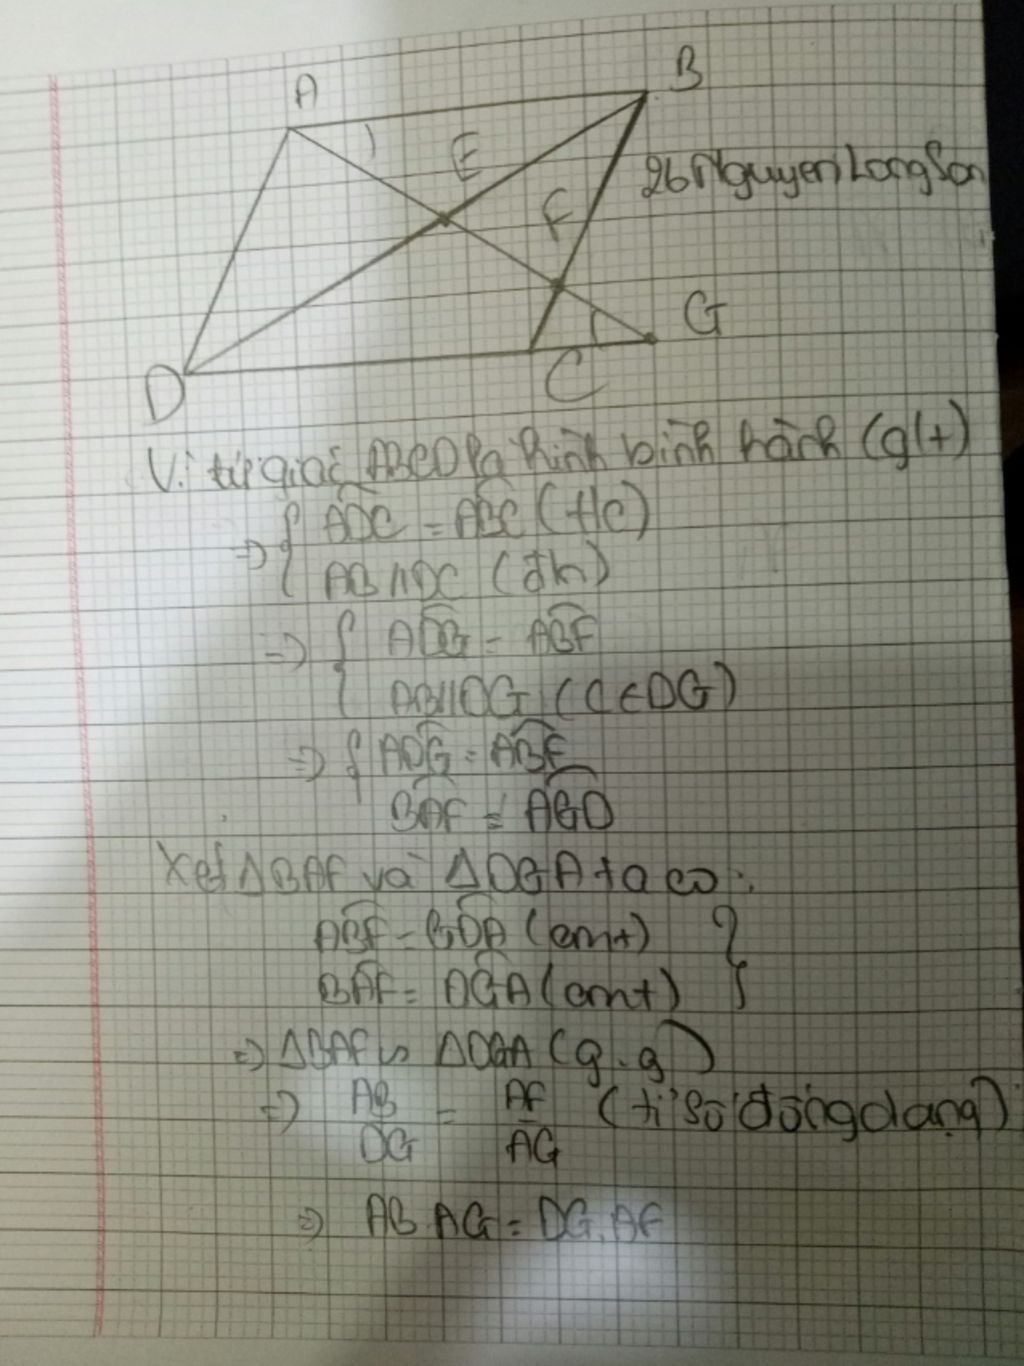 A
B
E
26 Nguyen Long Son
F
G
D
C
Vì tứ giác ABCD là hình bình hành (glt)
=> { ADC = ABC (t/c)
AB // DC (đn)
=> { ADG = ABF
AB // DG (C ∈ DG)
=> { ADG = ABF
BAF = AGD
Xét ΔBAF và ΔDGA ta có:
ABF = GDA (cmt) }
BAF = DGA (cmt)
=> ΔBAF ∽ ΔDGA (g.g)
=> AB/DG = AF/AG (tỉ số đồng dạng)
=> AB.AG = DG.AF